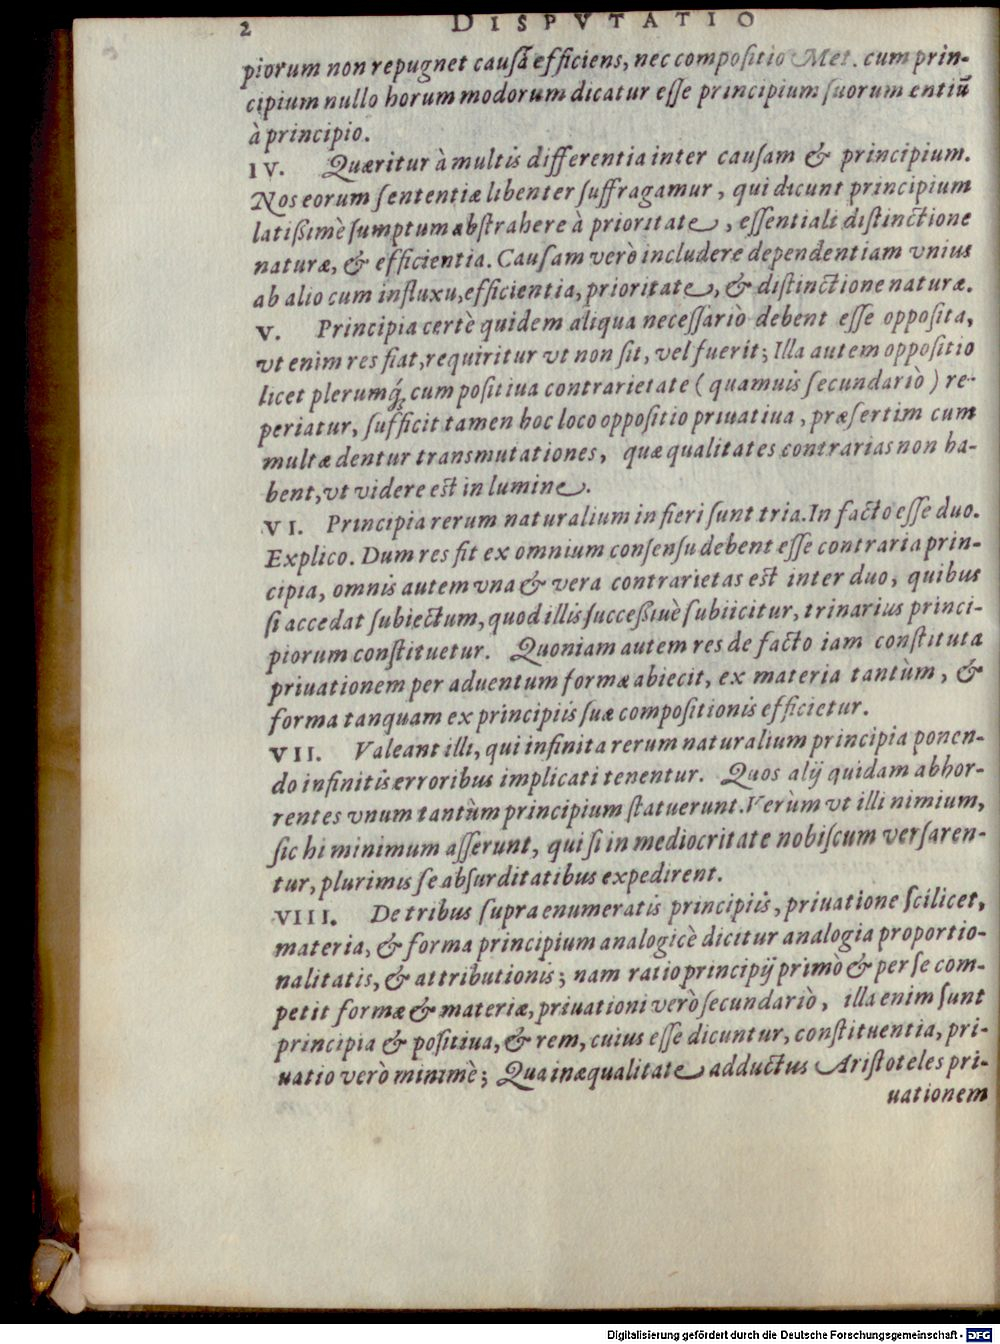 2 DISPVTATIO
piorum non repugnet causã efficiens, nec compositio Met. cum prin-
cipium nullo horum modorum dicatur esse principium suorum entiũ
à principio.
IV. Quæritur à multis differentia inter causam & principium.
Nos eorum sententiæ libenter suffragamur, qui dicunt principium
latißimè sumptum abstrahere à prioritate, essentiali distinctione
naturæ, & efficientia. Causam verò includere dependentiam vnius
ab alio cum influxu, efficientia, prioritate, & distinctione naturæ.
V. Principia certè quidem aliqua necessariò debent esse opposita,
vt enim res fiat, requiritur vt non sit, vel fuerit; Illa autem oppositio
licet plerumq́; cum positiua contrarietate (quamuis secundariò) re-
periatur, sufficit tamen hoc loco oppositio priuatiua, præsertim cum
multæ dentur transmutationes, quæ qualitates contrarias non ha-
bent, vt videre est in lumine.
VI. Principia rerum naturalium in fieri sunt tria. In facto esse duo.
Explico. Dum res fit ex omnium consensu debent esse contraria prin-
cipia, omnis autem vna & vera contrarietas est inter duo, quibus
si accedat subiectum, quod illis succeßiuè subiicitur, trinarius princi-
piorum constituetur. Quoniam autem res de facto iam constituta
priuationem per aduentum formæ abiecit, ex materia tantùm, &
forma tanquam ex principiis suæ compositionis efficietur.
VII. Valeant illi, qui infinita rerum naturalium principia ponen-
do infinitis erroribus implicati tenentur. Quos alij quidam abhor-
rentes vnum tantùm principium statuerunt. Verùm vt illi nimium,
sic hi minimum asserunt, qui si in mediocritate nobiscum versaren-
tur, plurimis se absurditatibus expedirent.
VIII. De tribus supra enumeratis principiis, priuatione scilicet,
materia, & forma principium analogicè dicitur analogia proportio-
nalitatis, & attributionis; nam ratio principij primò & per se com-
petit formæ & materiæ, priuationi verò secundariò, illa enim sunt
principia & positiua, & rem, cuius esse dicuntur, constituentia, pri-
uatio verò minimè; Qua inæqualitate adductus Aristoteles pri-
uationem
Digitalisierung gefördert durch die Deutsche Forschungsgemeinschaft - DFG